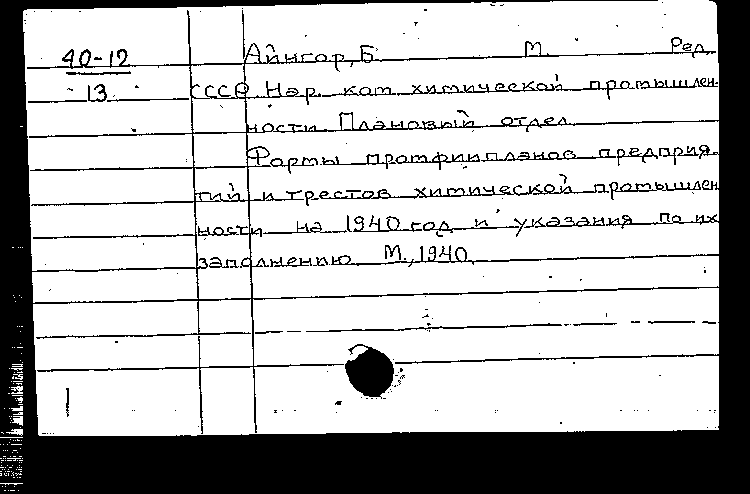 40-12 Айнгор, Б. М. Ред.
13 СССР. Нар. ком. химической промышлен-
ности. Плановый отдел.
Формы промфинпланов предприя-
тий и трестов химической промышлен
ности на 1940 год и указания по их
заполнению. М., 1940.